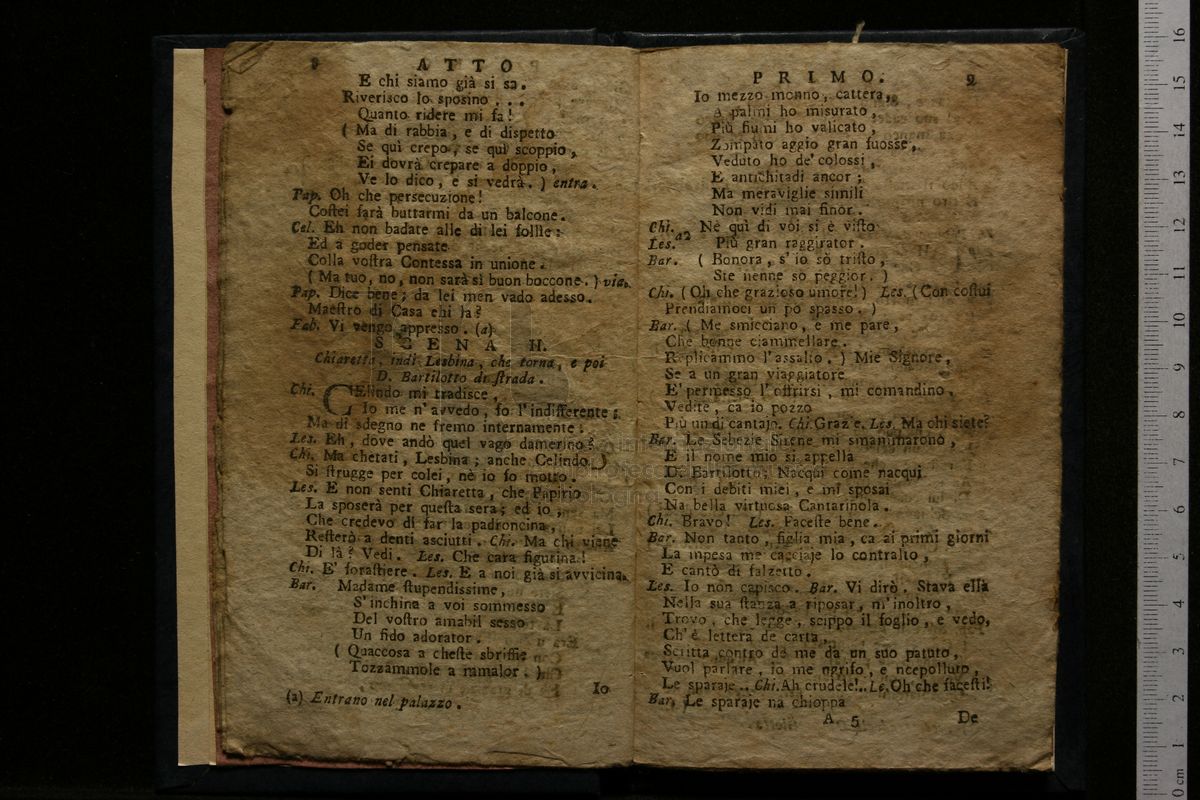 8 ATTO
E chi siamo già si sa.
Riverisco lo sposino . . .
Quanto ridere mi fa!
( Ma di rabbia, e di dispetto
Se quì crepo, se quì scoppio,
Ei dovrà crepare a doppio,
Ve lo dico, e si vedrà. ) entra.
Pap. Oh che persecuzione!
Costei farà buttarmi da un balcone.
Cel. Eh non badate alle di lei follie:
Ed a goder pensate
Colla vostra Contessa in unione.
( Ma tuo, no, non sarà sì buon boccone. ) via.
Pap. Dice bene; da lei men vado adesso.
Maestro di Casa ehi là?
Fab. Vi vengo appresso. (a)
SCENA II.
Chiaretta, indi Lesbina, che torna, e poi
D. Bartilotto di strada.
Chi. CElindo mi tradisce,
Io me n'avvedo, fo l'indifferente;
Ma di sdegno ne fremo internamente.
Les. Eh, dove andò quel vago damerino?
Chi. Ma chetati, Lesbina; anche Celindo
Si strugge per colei, nè io fo motto.
Les. E non senti Chiaretta, che Papirio
La sposerà per questa sera; ed io,
Che credevo di far la padroncina,
Resterò a denti asciutti. Chi. Ma chi viene
Di là? Vedi. Les. Che cara figurina!
Chi. E' forastiere. Les. E a noi già si avvicina.
Bar. Madame stupendissime,
S'inchina a voi sommesso
Del vostro amabil sesso
Un fido adorator.
( Quaccosa a cheste sbriffie
Tozzammole a ramalor. )
Io
(a) Entrano nel palazzo.
PRIMO. 9
Io mezzo monno, cattera,
A palmi ho misurato,
Più fiumi ho valicato,
Zompato aggio gran fuosse,
Veduto ho de' colossi,
E antichitadi ancor;
Ma meraviglie simili
Non vidi mai finor.
Chi. Les. a2 Nè quì di voi si è visto
Più gran raggirator.
Bar. ( Bonora, s'io sò tristo,
Ste nenne so peggior. )
Chi. (Oh che grazioso umore!) Les. (Con costui
Prendiamoci un pò spasso. )
Bar. ( Me smicciano, e me pare,
Che bonne ciammellare.
Replicammo l'assalto. ) Mie Signore,
Se a un gran viaggiatore
E' permesso l'offrirsi, mi comandino,
Vedite, ca io pozzo
Più un di cantajo. Chi. Grazie. Les. Ma chi siete?
Bar. Le Sebezie Sirene mi smammarono,
E il nome mio si appella
D. Bartilotto; Nacqui come nacqui
Con i debiti miei, e mi sposai
Na bella virtuosa Cantarinola.
Chi. Bravo! Les. Faceste bene.
Bar. Non tanto, figlia mia, ca ai primi giorni
La mpesa me cacciaje lo contralto,
E cantò di falzetto.
Les. Io non capisco. Bar. Vi dirò. Stava ella
Nella sua stanza a riposar, m'inoltro,
Trovo, che legge, scippo il foglio, e vedo,
Ch'è lettera de carta,
Scritta contro de me da un suo patuto,
Vuol parlare, io me ngrifo, e ncepolluto,
Le sparaje .. Chi. Ah crudele!.. Le. Oh che facesti!
Bar. Le sparaje na chioppa
A 5 De